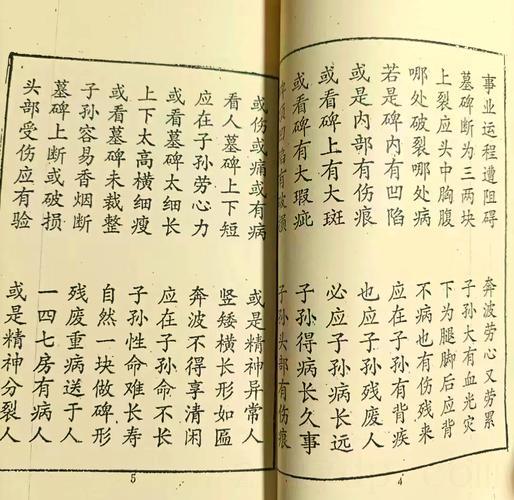 事业运程遭阻碍 奔波劳心又劳累
墓碑断为三两块 子孙大有血光灾
上裂应头中胸腹 下为腿脚后应背
哪处破裂哪处病 不病也有伤残来
若是碑内有凹陷 应在子孙有背疾
或是内部有伤痕 也应子孙残废人
或看碑上有大斑 必应子孙病长远
或看碑有大瑕疵 子孙得病长久事
顶凹陷有破损 子孙头部有伤痕
4
或伤或痛或有病 或是精神异常人
看人墓碑上下短 竖矮横长形如匾
应在子孙劳心力 奔波不得享清闲
或看墓碑太细长 应在子孙命不长
上下太高横细瘦 子孙性命难长寿
或看墓碑未裁整 自然一块做碑形
子孙容易香烟断 残废重病送于人
墓碑上断或破损 一四七房有病人
头部受伤应有验 或是精神分裂人
5